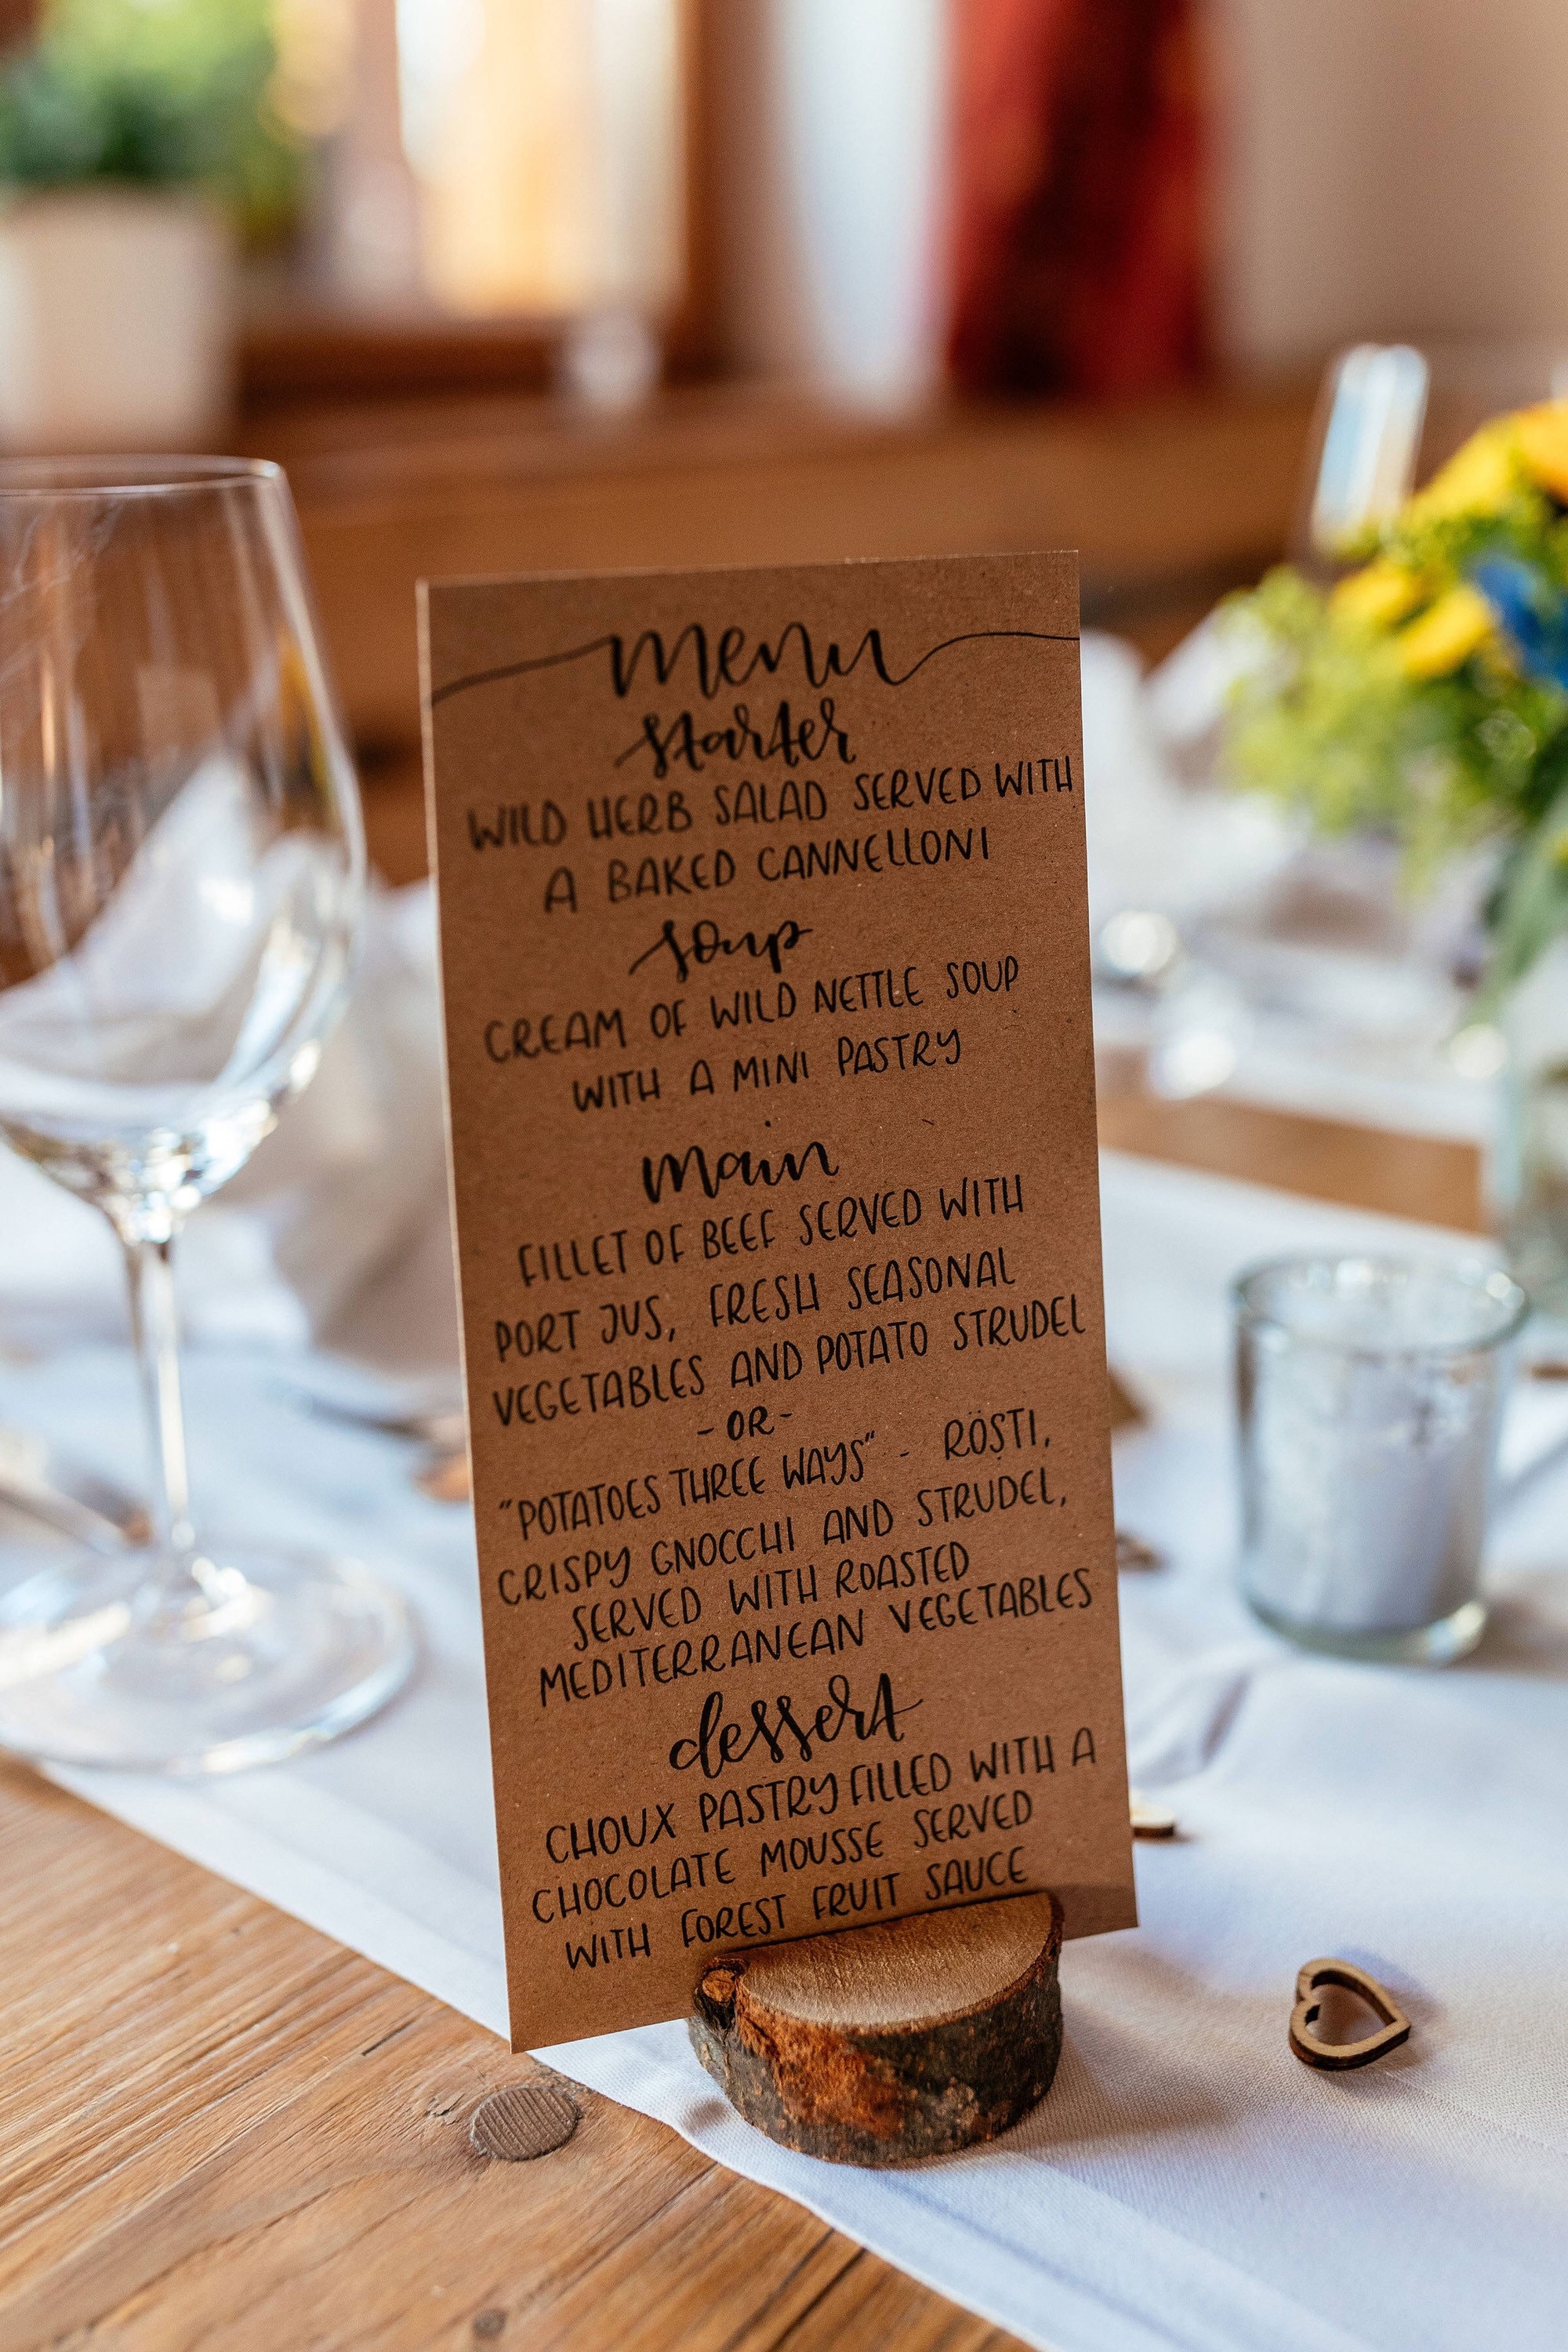 menu
starter
WILD HERB SALAD SERVED WITH
A BAKED CANNELLONI
soup
CREAM OF WILD NETTLE SOUP
WITH A MINI PASTRY
main
FILLET OF BEEF SERVED WITH
PORT JUS, FRESH SEASONAL
VEGETABLES AND POTATO STRUDEL
- OR -
"POTATOES THREE WAYS" - RÖSTI,
CRISPY GNOCCHI AND STRUDEL,
SERVED WITH ROASTED
MEDITERRANEAN VEGETABLES
dessert
CHOUX PASTRY FILLED WITH A
CHOCOLATE MOUSSE SERVED
WITH FOREST FRUIT SAUCE